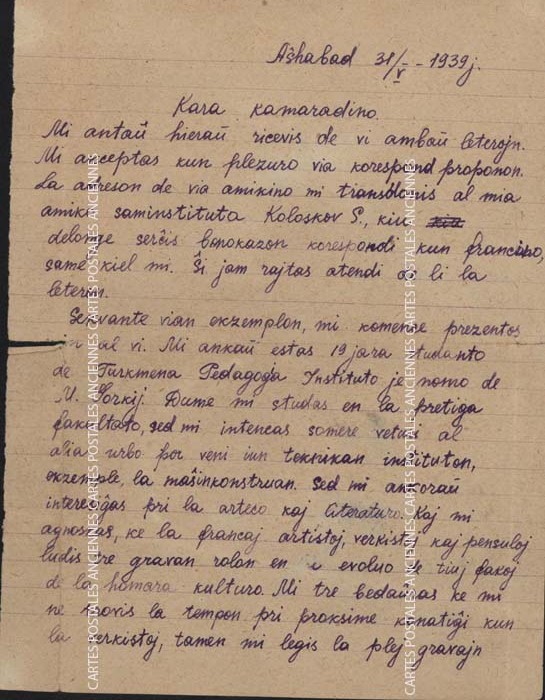 Aŝhabad 31/V - 1939 j.
Kara kamaradino.
Mi antaŭ hieraŭ ricevis de vi ambaŭ leterojn.
Mi akceptas kun plezuro via korespond proponon.
La adreson de via amikino mi transdonis al mia
amiko saminstituta Koloskov S., kiu
delonge serĉis bonokazon korespondi kun francino,
same kiel mi. Ŝi jam rajtas atendi de li la
leteron.
Servante vian ekzemplon, mi komence prezentos
al vi. Mi ankaŭ estas 19 jara studanto
de Turkmena Pedagogia Instituto je nomo de
M. Gorkij. Dume mi studas en la
fakultato, sed mi intencas somere veturi al
alia urbo por veni iun teknikan instituton,
ekzemple, la maŝinkonstruan. Sed mi ankoraŭ
interesiĝas pri la arteco kaj literaturo. Kaj mi
agnoskas, ke la francaj artistoj, verkistoj kaj pensuloj
ludis tre gravan rolon en evoluo de tiuj fakoj
de la homara kulturo. Mi tre bedaŭras ke mi
ne trovis la tempon pri proksime konatiĝi kun
la verkistoj, tamen mi legis la plej gravajn
CARTES POSTALES ANCIENNES CARTES POSTALES ANCIENNES CARTES POSTALES ANCIENNES
CARTES POSTALES ANCIENNES CARTES POSTALES ANCIENNES CARTES POSTALES ANCIENNES